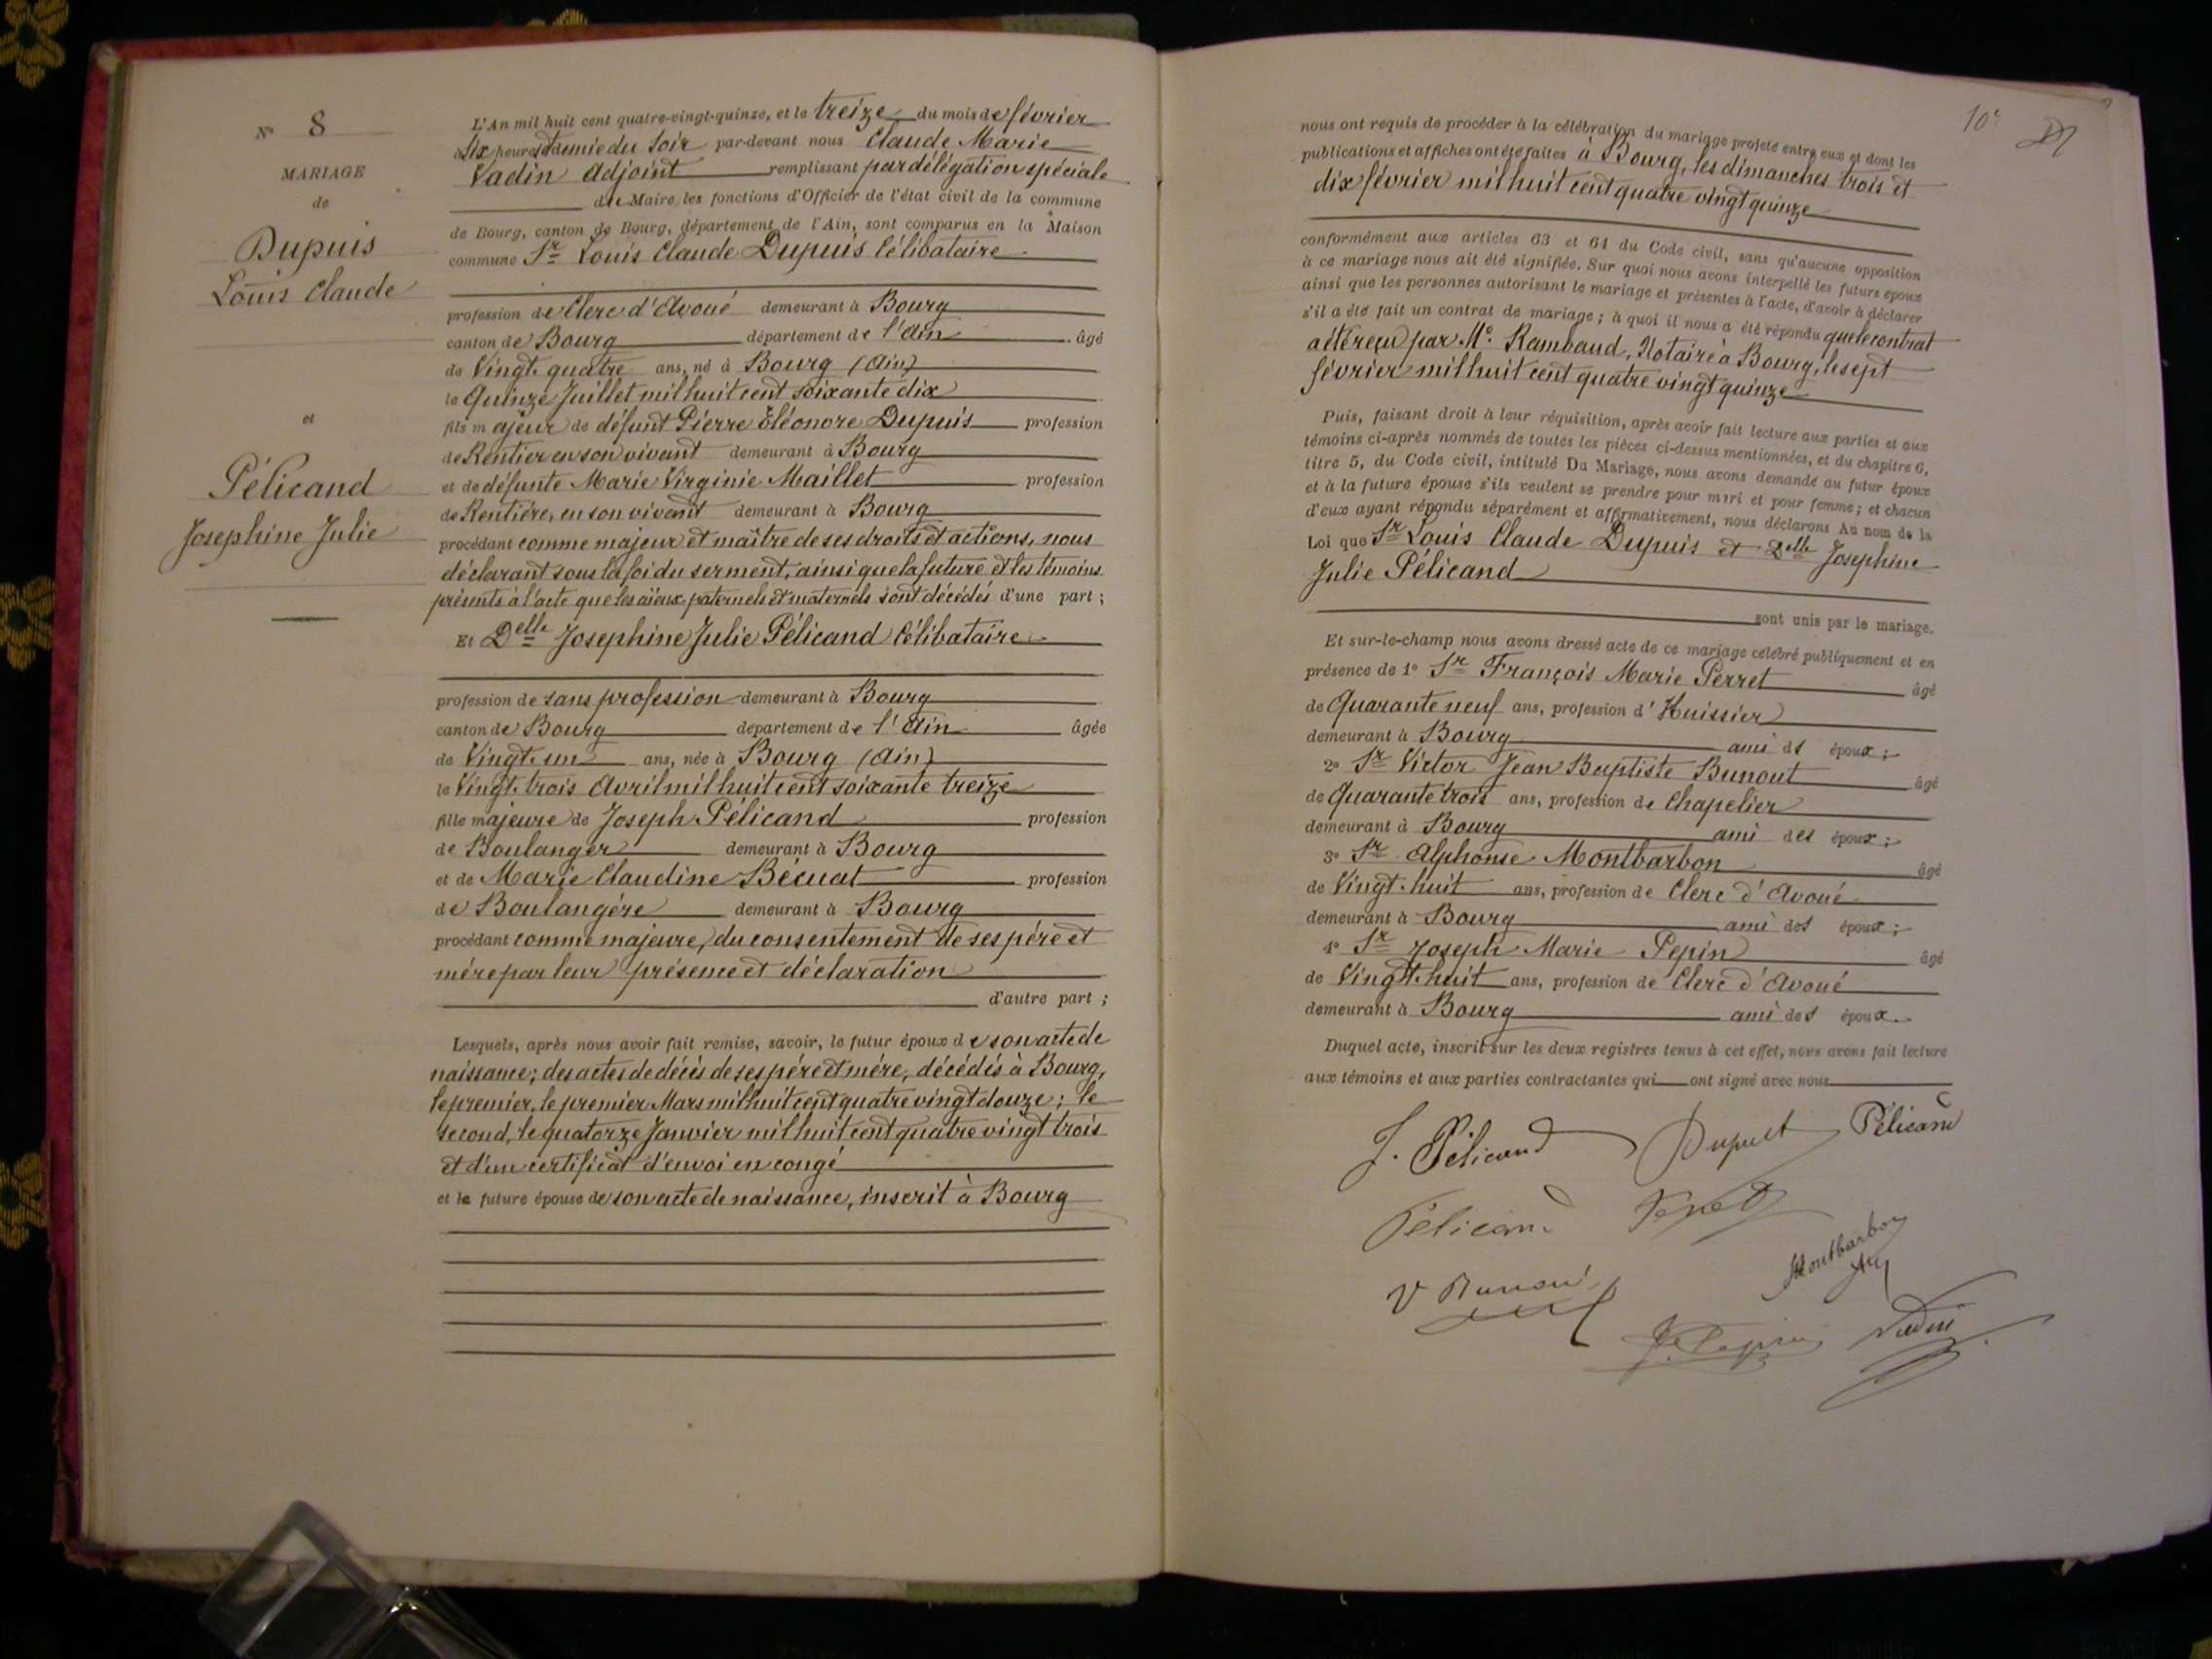 N° 8
MARIAGE
de
Dupuis
Louis Claude
et
Pélicand
Josephine Julie
L'An mil huit cent quatre-vingt-quinze, et le treize du mois de février
à Six heures et demie du Soir par-devant nous Claude Marie
Vadin Adjoint remplissant par délégation spéciale
du Maire, les fonctions d'Officier de l'état civil de la commune
de Bourg, canton de Bourg, département de l'Ain, sont comparus en la Maison
commune Sr Louis Claude Dupuis Célibataire
profession de Clerc d'Avoué demeurant à Bourg
canton de Bourg département de l'Ain âgé
de Vingt-quatre ans, né à Bourg (Ain)
le Quinze Juillet mil huit cent soixante dix
fils majeur de défunt Pierre Éléonore Dupuis profession
de Rentier en son vivant demeurant à Bourg
et de défunte Marie Virginie Maillet profession
de Rentière, en son vivant demeurant à Bourg
procédant comme majeur et maître de ses droits et actions, nous
déclarant sous la foi du serment, ainsi que la future et les témoins
présents à l'acte que les aïeux paternels et maternels sont décédés d'une part ;
Et Delle Josephine Julie Pélicand Célibataire
profession de sans profession demeurant à Bourg
canton de Bourg département de l'Ain âgée
de Vingt-un ans, née à Bourg (Ain)
le Vingt-trois Avril mil huit cent soixante treize
fille majeure de Joseph Pélicand profession
de Boulanger demeurant à Bourg
et de Marie Claudine Bécuat profession
de Boulangère demeurant à Bourg
procédant comme majeure, du consentement de ses père et
mère par leur présence et déclaration
d'autre part ;
Lesquels, après nous avoir fait remise, savoir, le futur époux de son acte de
naissance ; des actes de décès de ses père et mère, décédés à Bourg,
le premier, le premier Mars mil huit cent quatre vingt douze ; le
second, le quatorze Janvier mil huit cent quatre vingt trois
et d'un certificat d'envoi en congé
et la future épouse de son acte de naissance, inscrit à Bourg
10e
nous ont requis de procéder à la célébration du mariage projeté entre eux et dont les
publications et affiches ont été faites à Bourg, les dimanches trois et
dix février mil huit cent quatre vingt quinze
conformément aux articles 63 et 64 du Code civil, sans qu'aucune opposition
à ce mariage nous ait été signifiée. Sur quoi nous avons interpellé les futurs époux
ainsi que les personnes autorisant le mariage et présentes à l'acte, d'avoir à déclarer
s'il a été fait un contrat de mariage ; à quoi il nous a été répondu que le contrat
a été reçu par Me Rambaud, Notaire à Bourg, le sept
février mil huit cent quatre vingt quinze
Puis, faisant droit à leur réquisition, après avoir fait lecture aux parties et aux
témoins ci-après nommés de toutes les pièces ci-dessus mentionnées, et du chapitre 6,
titre 5, du Code civil, intitulé Du Mariage, nous avons demandé au futur époux
et à la future épouse s'ils veulent se prendre pour mari et pour femme ; et chacun
d'eux ayant répondu séparément et affirmativement, nous déclarons Au nom de la
Loi que Sr Louis Claude Dupuis et Delle Josephine
Julie Pélicand
sont unis par le mariage.
Et sur-le-champ nous avons dressé acte de ce mariage célébré publiquement et en
présence de 1° Sr François Marie Perret âgé
de Quarante neuf ans, profession d'Huissier
demeurant à Bourg ami ds époux ;
2° Sr Victor Jean Baptiste Bunout âgé
de Quarante trois ans, profession de Chapelier
demeurant à Bourg ami des époux ;
3° Sr Alphonse Montbarbon âgé
de Vingt-huit ans, profession de Clerc d'Avoué
demeurant à Bourg ami des époux ;
4° Sr Joseph Marie Pepin âgé
de Vingt-huit ans, profession de Clerc d'Avoué
demeurant à Bourg ami des époux.
Duquel acte, inscrit sur les deux registres tenus à cet effet, nous avons fait lecture
aux témoins et aux parties contractantes qui ont signé avec nous
J. Pélicand Dupuis Pélicand
Pélicand Perret
Montbarbon
V Bunout
J. Pepin Vadin